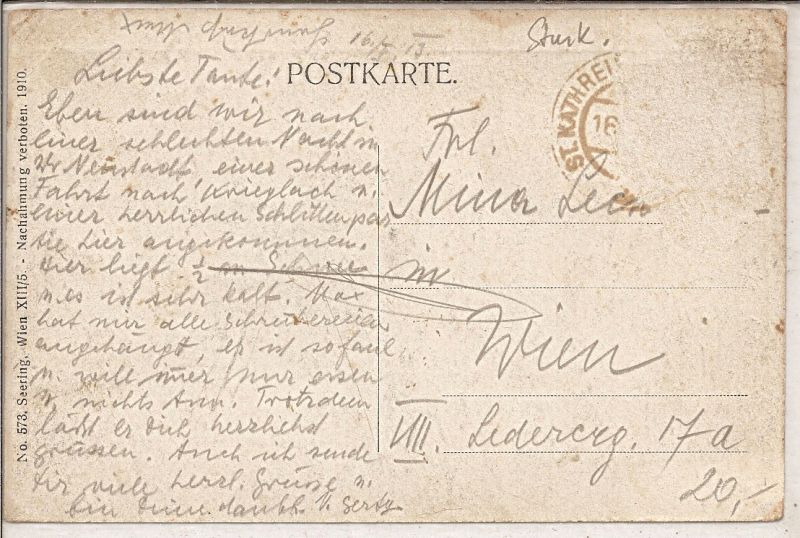 16/I 13
Stuck.
Liebste Tante!
POSTKARTE.
Eben sind wir nach
einer schlechten Nacht in
Wr Neustadt, einer schönen
Fahrt nach Krieglach u.
einer herrlichen Schlittenpar
tie hier angekommen.
Hier liegt ½ m Schnee
u. es ist sehr kalt. Max
hat mir alle Schreibereien
angehängt, er ist so faul
u. will immer nur essen
u. nichts tun. Trotzdem
läßt er Dich herzlichst
grüssen. Auch ich sende
Dir viele herzl. Grüsse u.
bin Deine dankb.
ST. KATHREI
16
Frl.
Mina
in
Wien
VIII. Ledererg. 17a
20,-
No. 573. Seering, Wien XIII/5. - Nachahmung verboten. 1910.